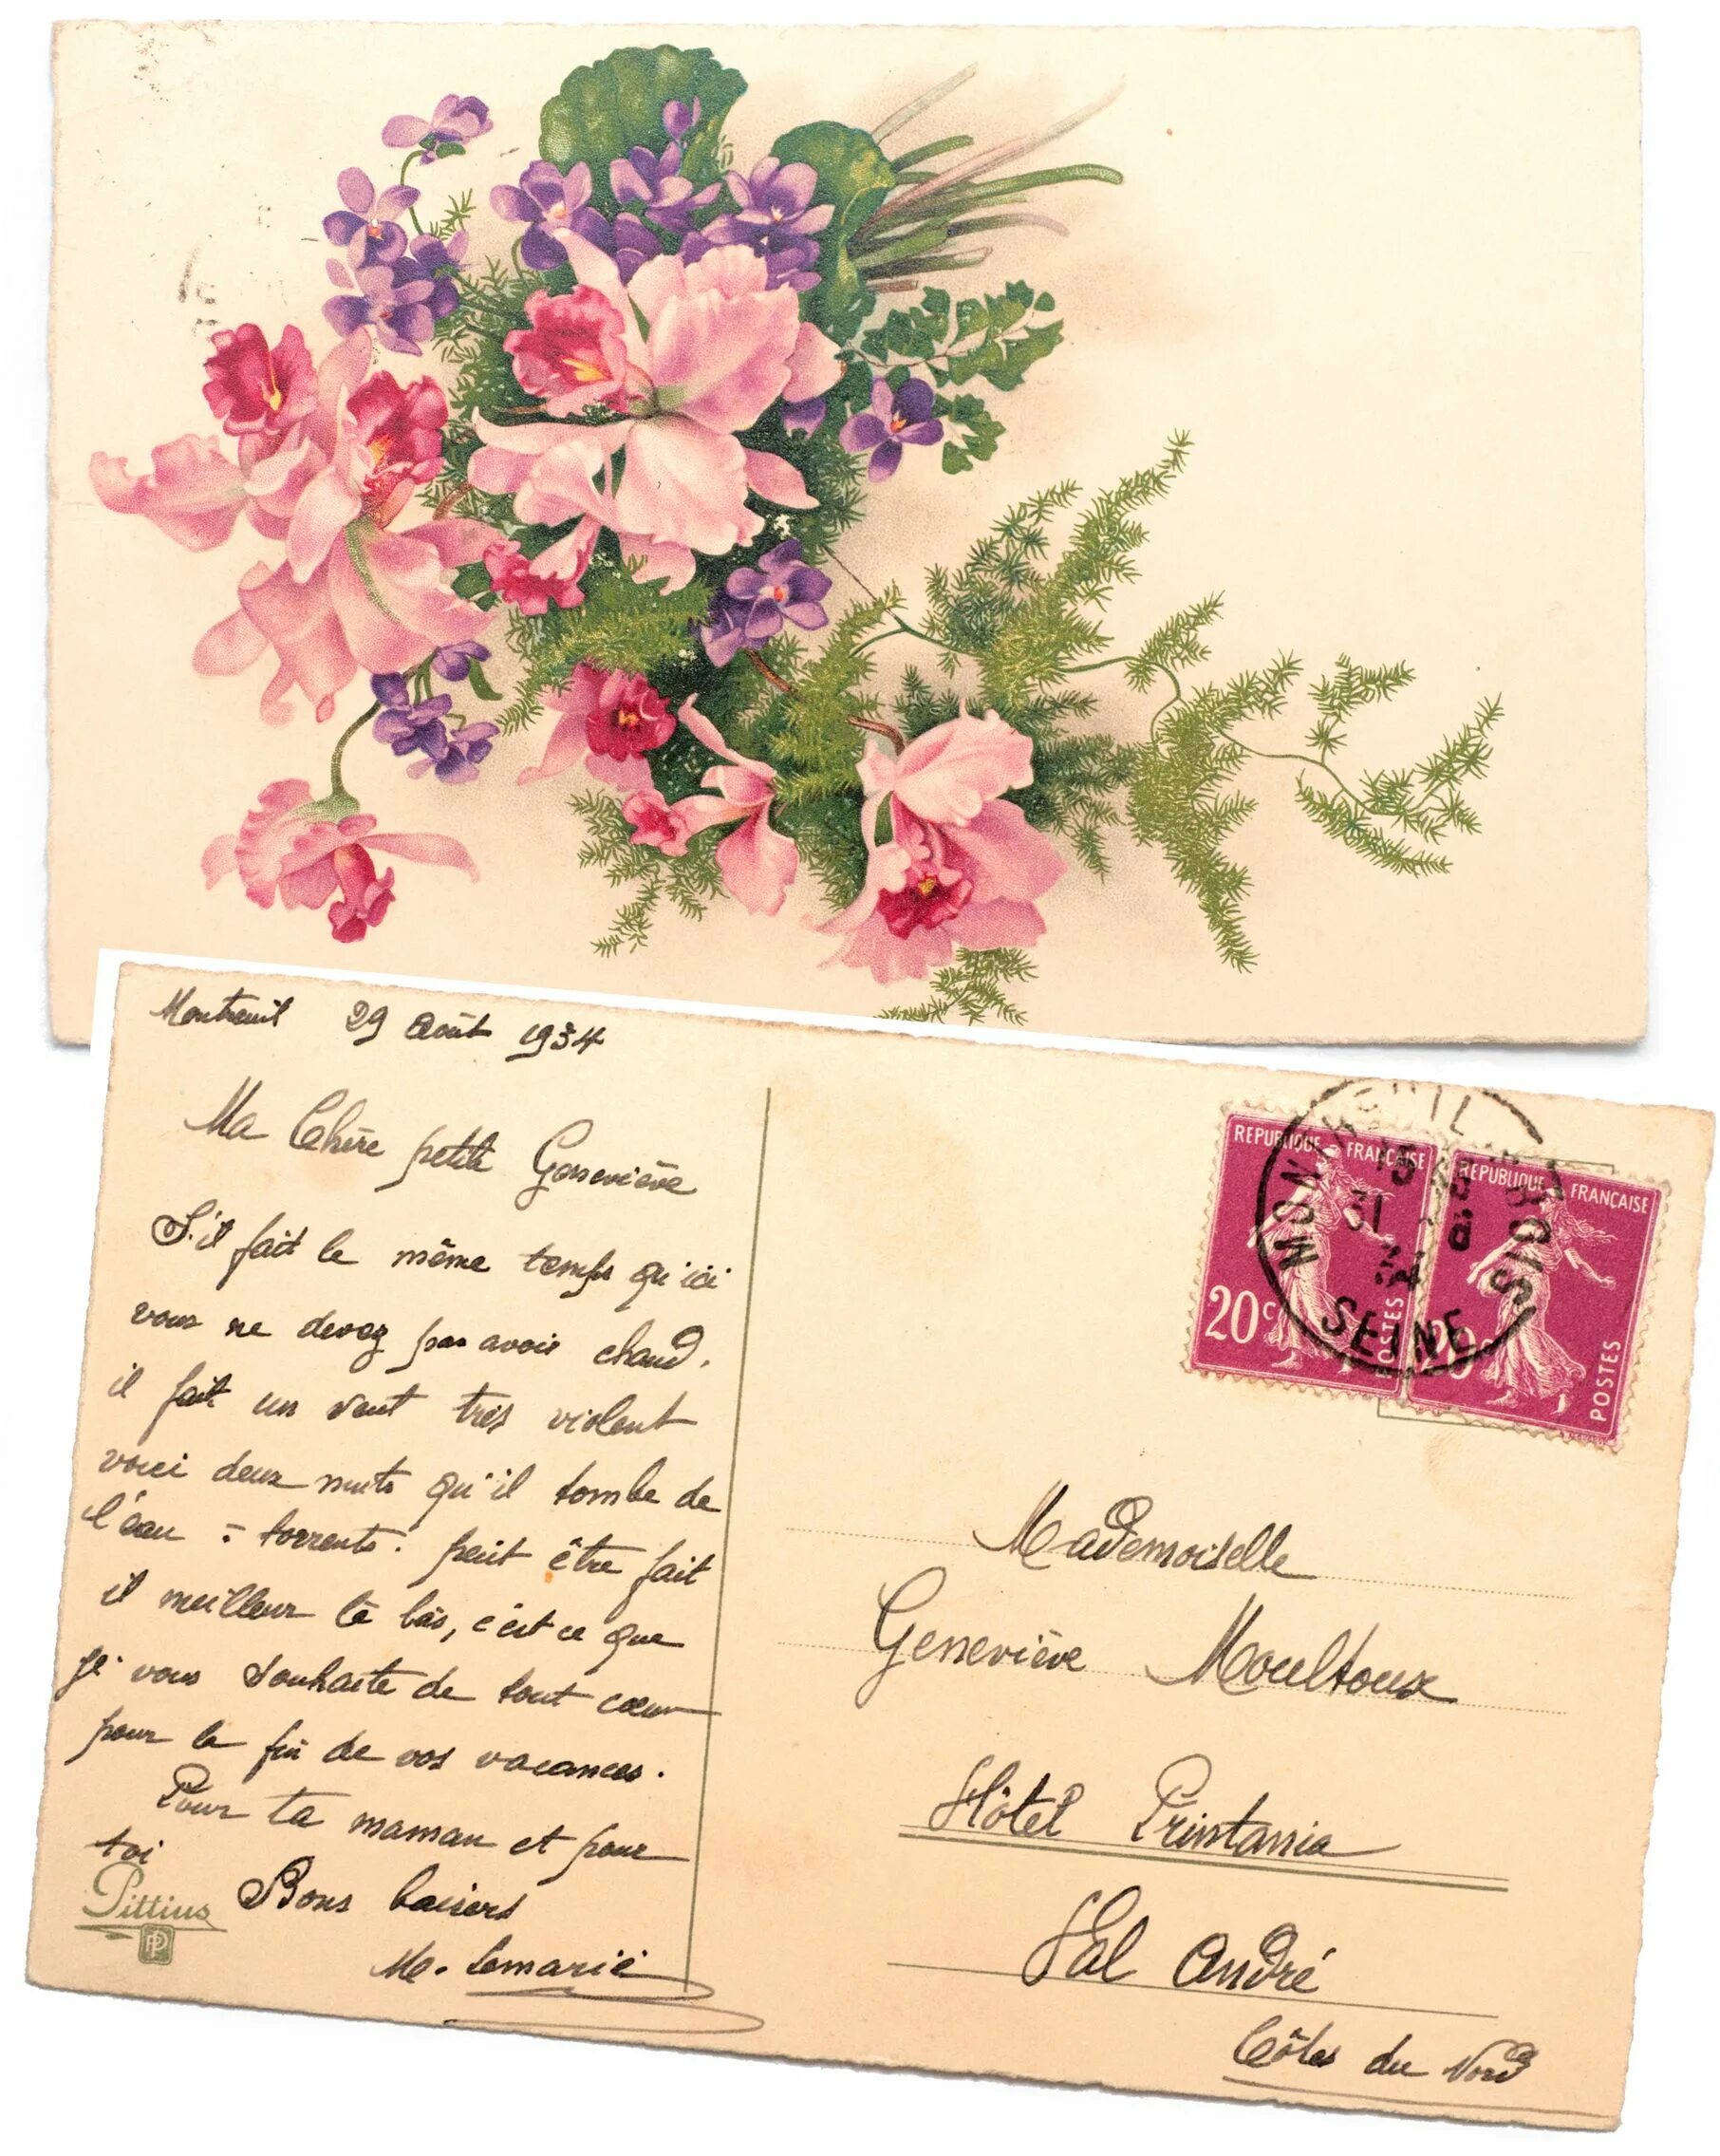 Montreuil 29 Août 1934
Ma Chère petite Geneviève
S'il fait le même temps qu'ici
vous ne devez pas avoir chaud.
il fait un vent très violent
voici deux nuits qu'il tombe de
l'eau à torrents. peut être fait
il meilleur là bàs, c'est ce que
je vous souhaite de tout cœur
pour la fin de vos vacances.
Pour ta maman et pour
toi
Bons baisers
M. Lemarié
Pittius
PP
REPUBLIQUE FRANÇAISE
20c
POSTES
REPUBLIQUE FRANÇAISE
20c
POSTES
MONTREUIL
S BOIS
SEINE
31
34
Mademoiselle
Geneviève Moultoux
Hôtel Printania
Val André
Côtes du Nord